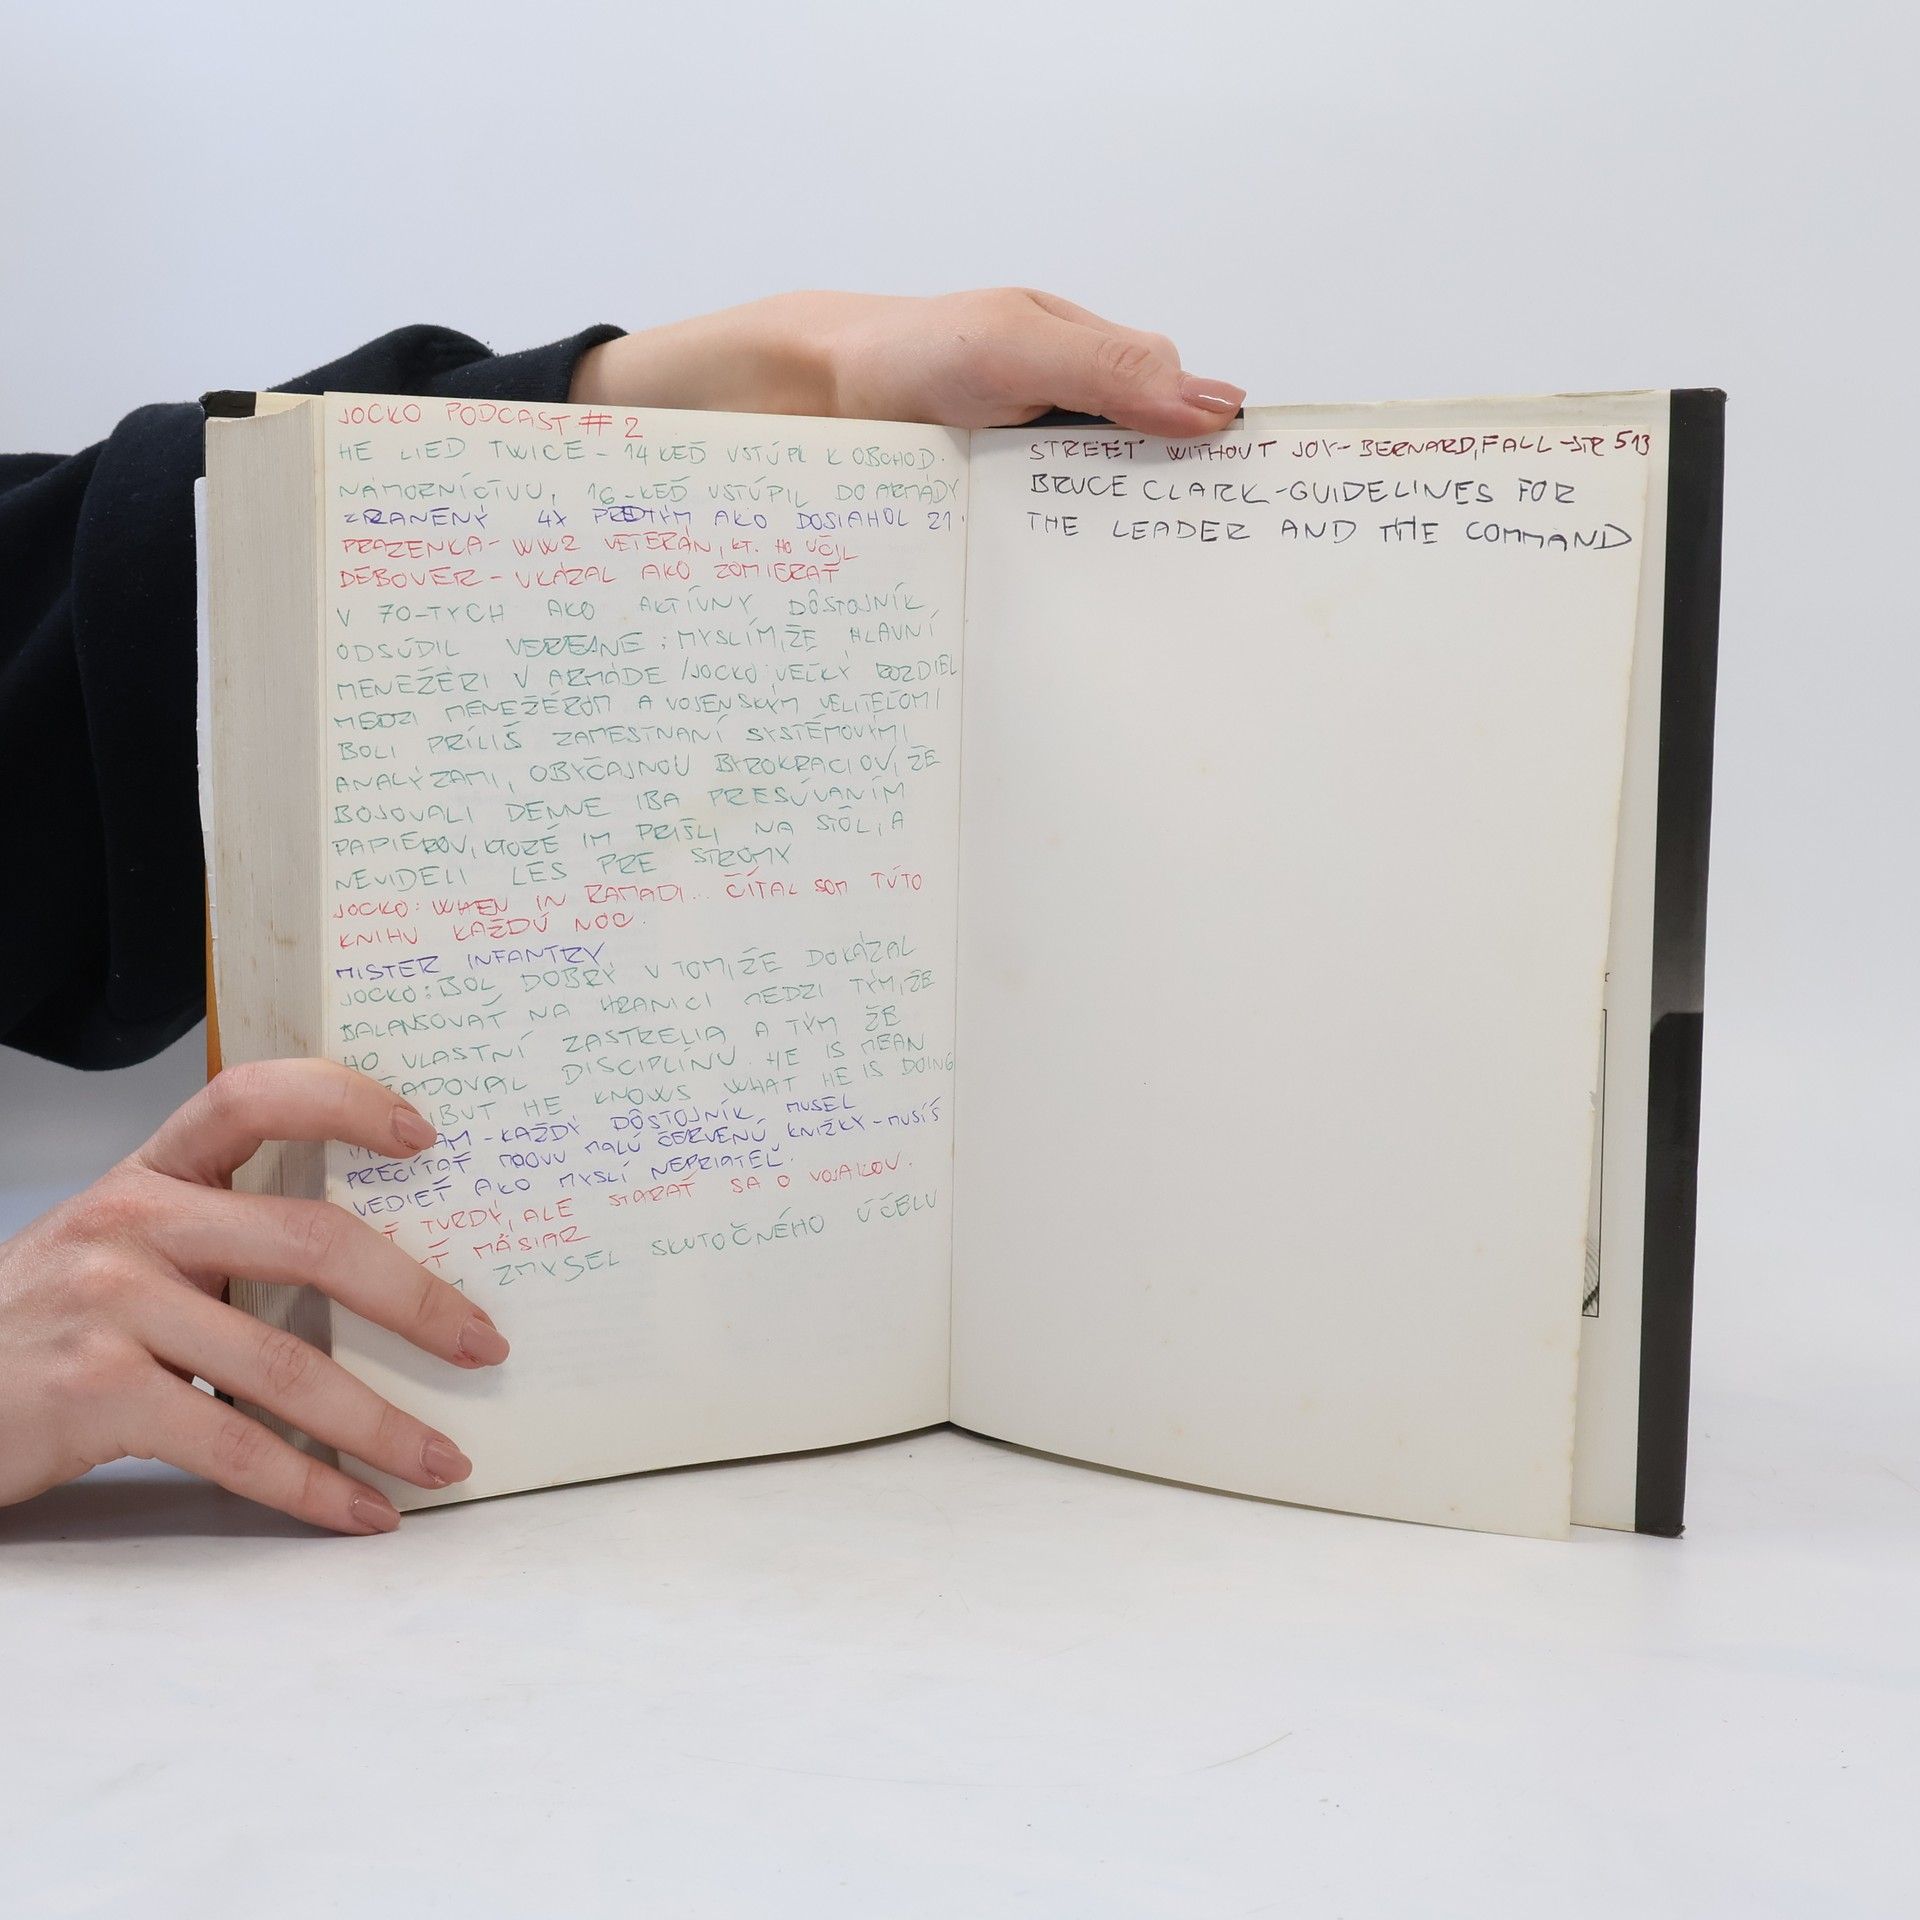 JOCKO PODCAST # 2
HE LIED TWICE - 14 KEĎ VSTÚPIL K OBCHOD.
NÁMORNÍCTVU, 16-KEĎ VSTÚPIL DO ARMÁDY
ZRANENÝ 4X PREDTÝM AKO DOSIAHOL 21.
PRAZENKA - WW2 VETERÁN, KT. HO UČIL
DEBOVER - UKÁZAL AKO ZOMIERAŤ
V 70-TYCH AKO AKTÍVNY DÔSTOJNÍK
ODSÚDIL VEREJNE: MYSLÍM, ŽE HLAVNÍ
MENEŽÉRI V ARMÁDE /JOCKO: VEĽKÝ ROZDIEL
MEDZI MENEŽÉROM A VOJENSKÝM VELITEĽOM/
BOLI PRÍLIŠ ZAMESTNANÍ SYSTÉMOVÝMI
ANALÝZAMI, OBYČAJNOU BYROKRACIOU, ŽE
BOJOVALI DENNE IBA PRESÚVANÍM
PAPIEROV, KTORÉ IM PRIŠLI NA STÔL, A
NEVIDELI LES PRE STROMY
JOCKO: WHEN IN RAMADI... ČÍTAL SOM TÚTO
KNIHU KAŽDÚ NOC.
MISTER INFANTRY
JOCKO: BOL DOBRÝ V TOM, ŽE DOKÁZAL
BALANSOVAŤ NA HRANICI MEDZI TÝM, ŽE
HO VLASTNÍ ZASTRELIA A TÝM ŽE
ADOVAL DISCIPLÍNU. HE IS MEAN
BUT HE KNOWS WHAT HE IS DOING
AM - KAŽDÝ DÔSTOJNÍK MUSEL
PREČÍTAŤ MAOVU MALÚ ČERVENÚ KNIŽKY - MUSÍŠ
VEDIEŤ AKO MYSLÍ NEPRIATEĽ.
TVRDÝ, ALE STARAŤ SA O VOJAKOV.
MÄSIAR
ZMYSEL SKUTOČNÉHO ÚČELU
STREET WITHOUT JOY - BERNARD, FALL - STR 513
BRUCE CLARK - GUIDELINES FOR
THE LEADER AND THE COMMAND